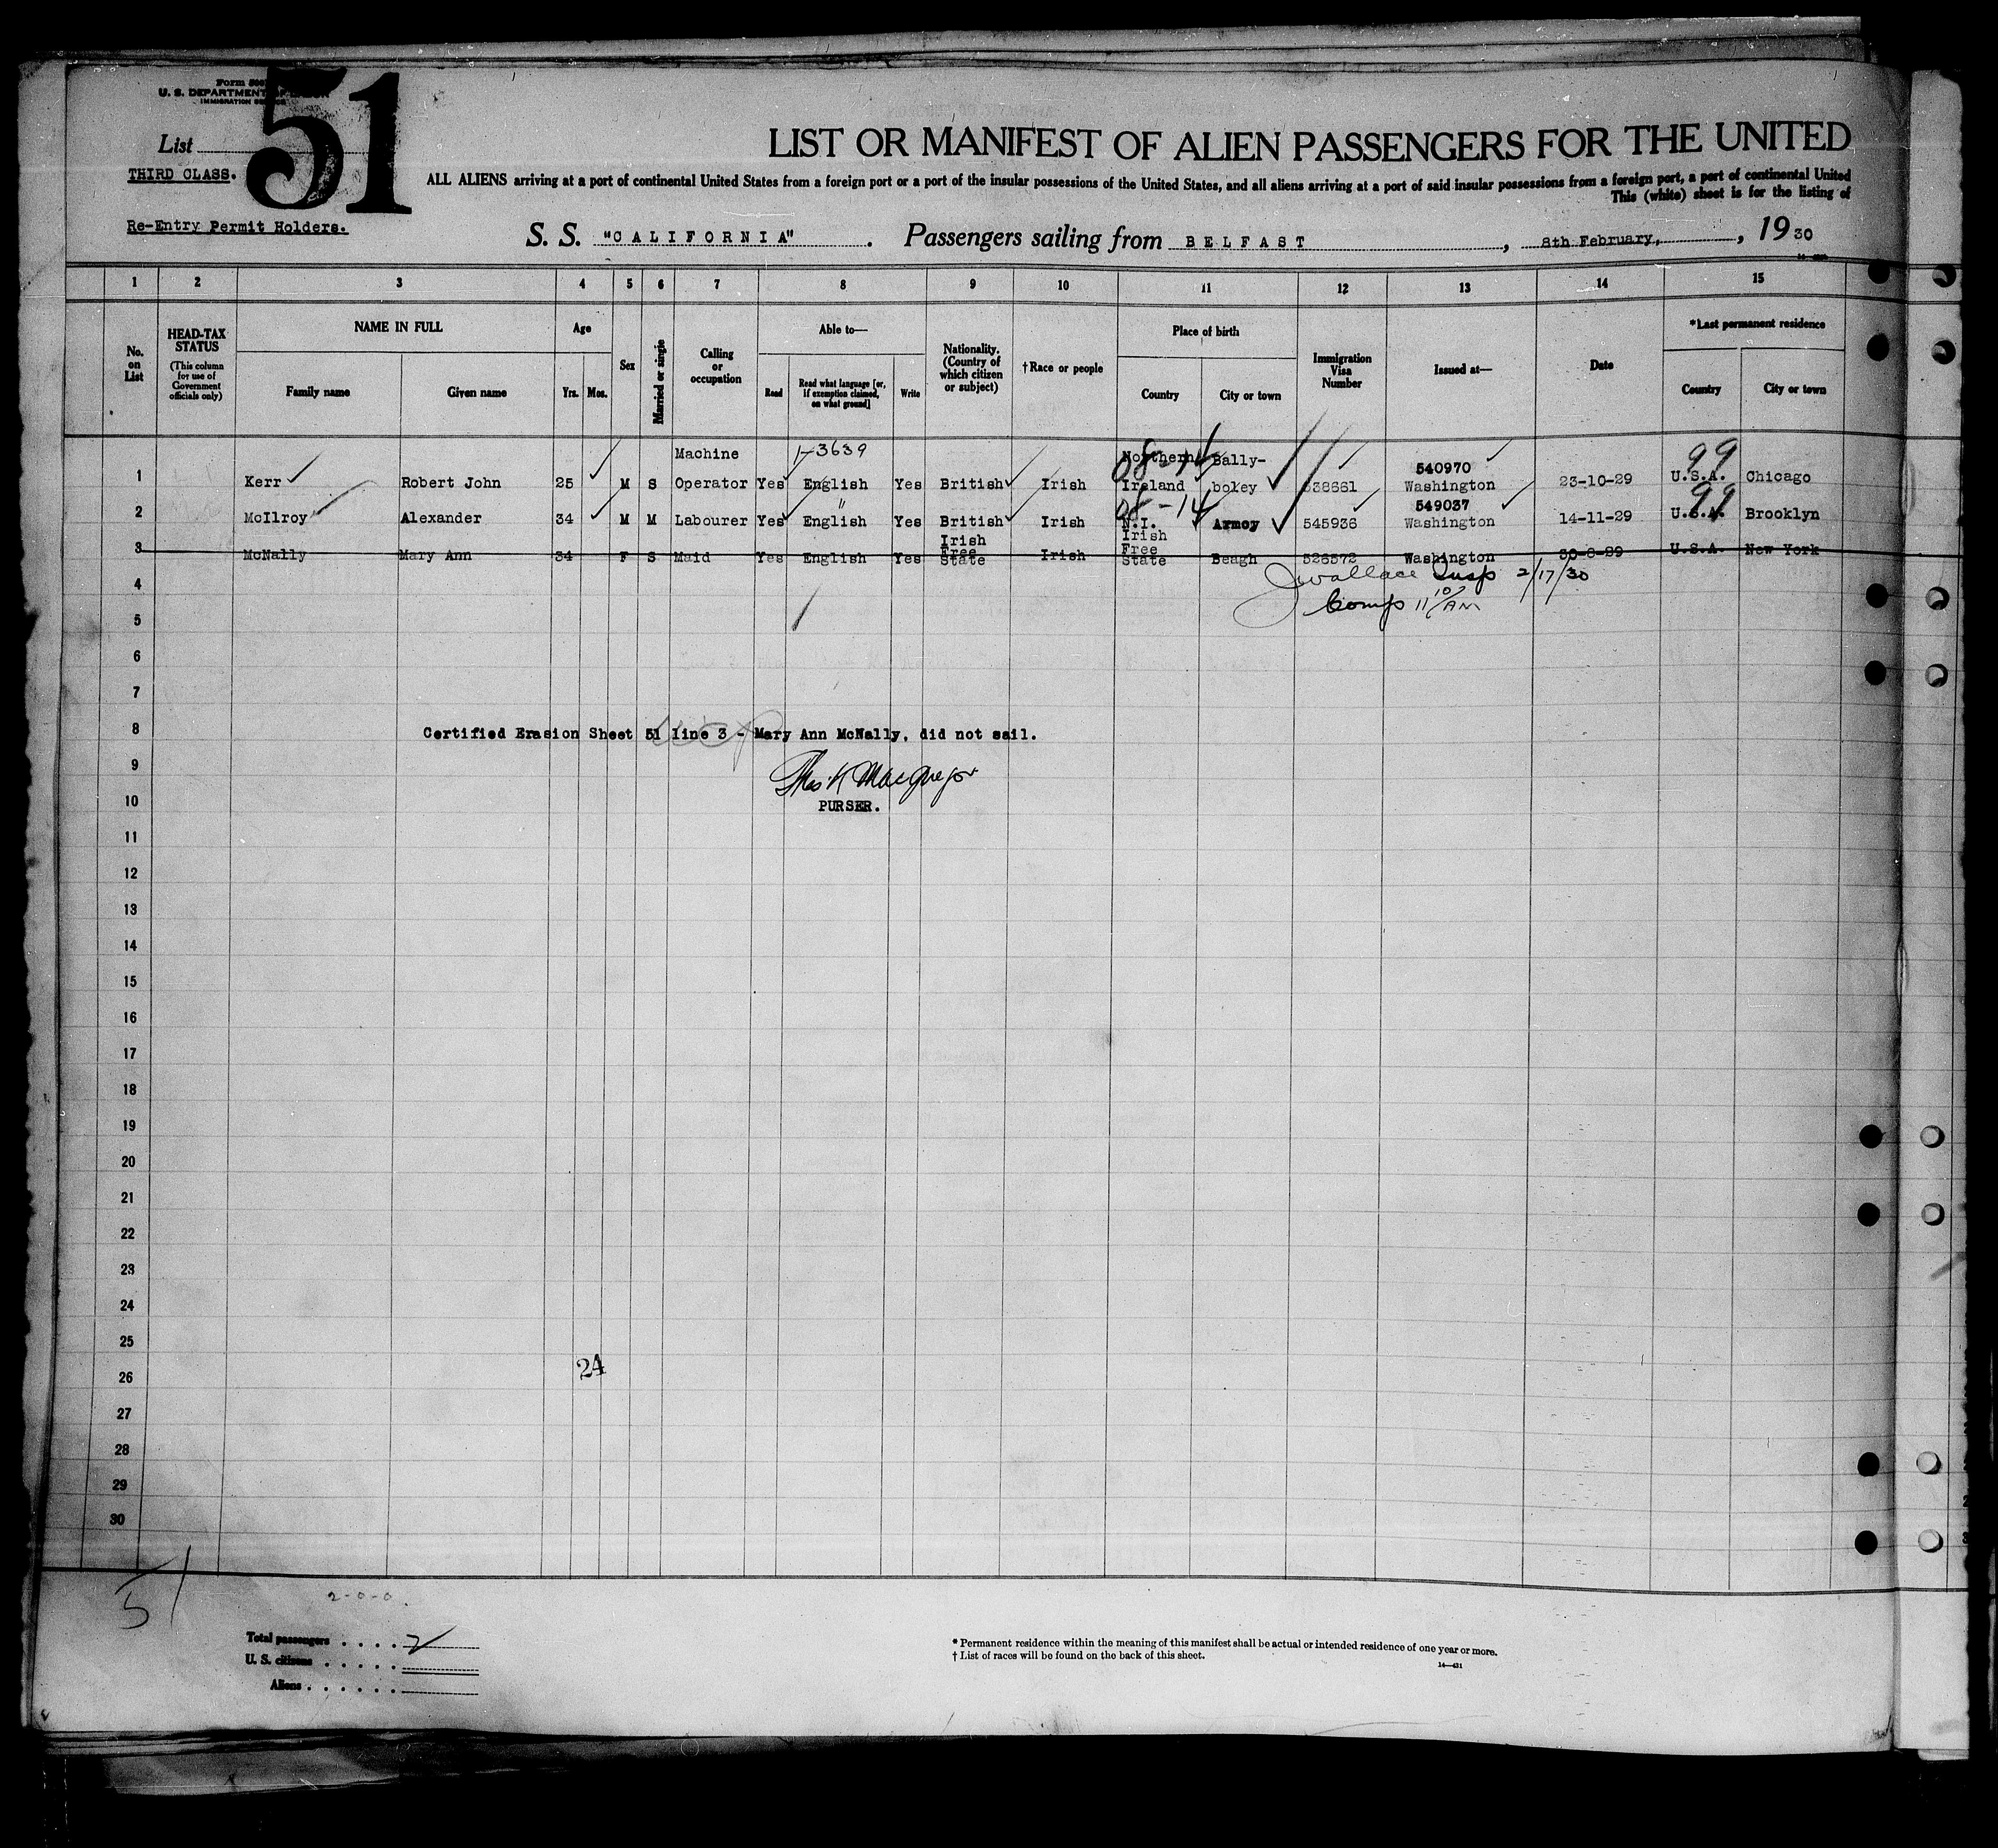 Form 500
U. S. DEPARTMENT OF LABOR
IMMIGRATION SERVICE
51
List
THIRD CLASS.
Re-Entry Permit Holders.
LIST OR MANIFEST OF ALIEN PASSENGERS FOR THE UNITED
ALL ALIENS arriving at a port of continental United States from a foreign port or a port of the insular possessions of the United States, and all aliens arriving at a port of said insular possessions from a foreign port, a port of continental United
This (white) sheet is for the listing of
S. S. "CALIFORNIA". Passengers sailing from BELFAST, 8th February, , 1930
1 2 3 4 5 6 7 8 9 10 11 12 13 14 15
No. on List
HEAD-TAX STATUS (This column for use of Government officials only)
NAME IN FULL
Family name
Given name
Age
Yrs. Mos.
Sex
Married or single
Calling or occupation
Able to—
Read
Read what language [or, if exemption claimed, on what ground]
Write
Nationality. (Country of which citizen or subject)
†Race or people
Place of birth
Country
City or town
Immigration Visa Number
Issued at—
Date
*Last permanent residence
Country
City or town
Machine 1-3639 Northern 08-14 Bally- 540970 99
1 Kerr Robert John 25 M S Operator Yes English Yes British Irish Ireland bokey 538661 Washington 23-10-29 U.S.A. Chicago
08-14 549037 99
2 McIlroy Alexander 34 M M Labourer Yes English " Yes British Irish N.I. Armoy 545936 Washington 14-11-29 U.S.A. Brooklyn
3 McNally Mary Ann 34 F S Maid Yes English Yes Irish Free State Irish Irish Free State Beagh 526572 Washington 30-8-29 U.S.A. New York
4 JWallace Insp 2/17/30
Comp 11 10/AM
5
6
7
8 Certified Erasion Sheet 51 line 3 - Mary Ann McNally, did not sail.
9 Thos K Macgregor
10 PURSER.
11
12
13
14
15
16
17
18
19
20
21
22
23
24
25
24
26
27
28
29
30
51
2-0-0.
Total passengers . . . . 2
U. S. citizens . . . . .
Aliens . . . . . .
* Permanent residence within the meaning of this manifest shall be actual or intended residence of one year or more.
† List of races will be found on the back of this sheet.
14—431